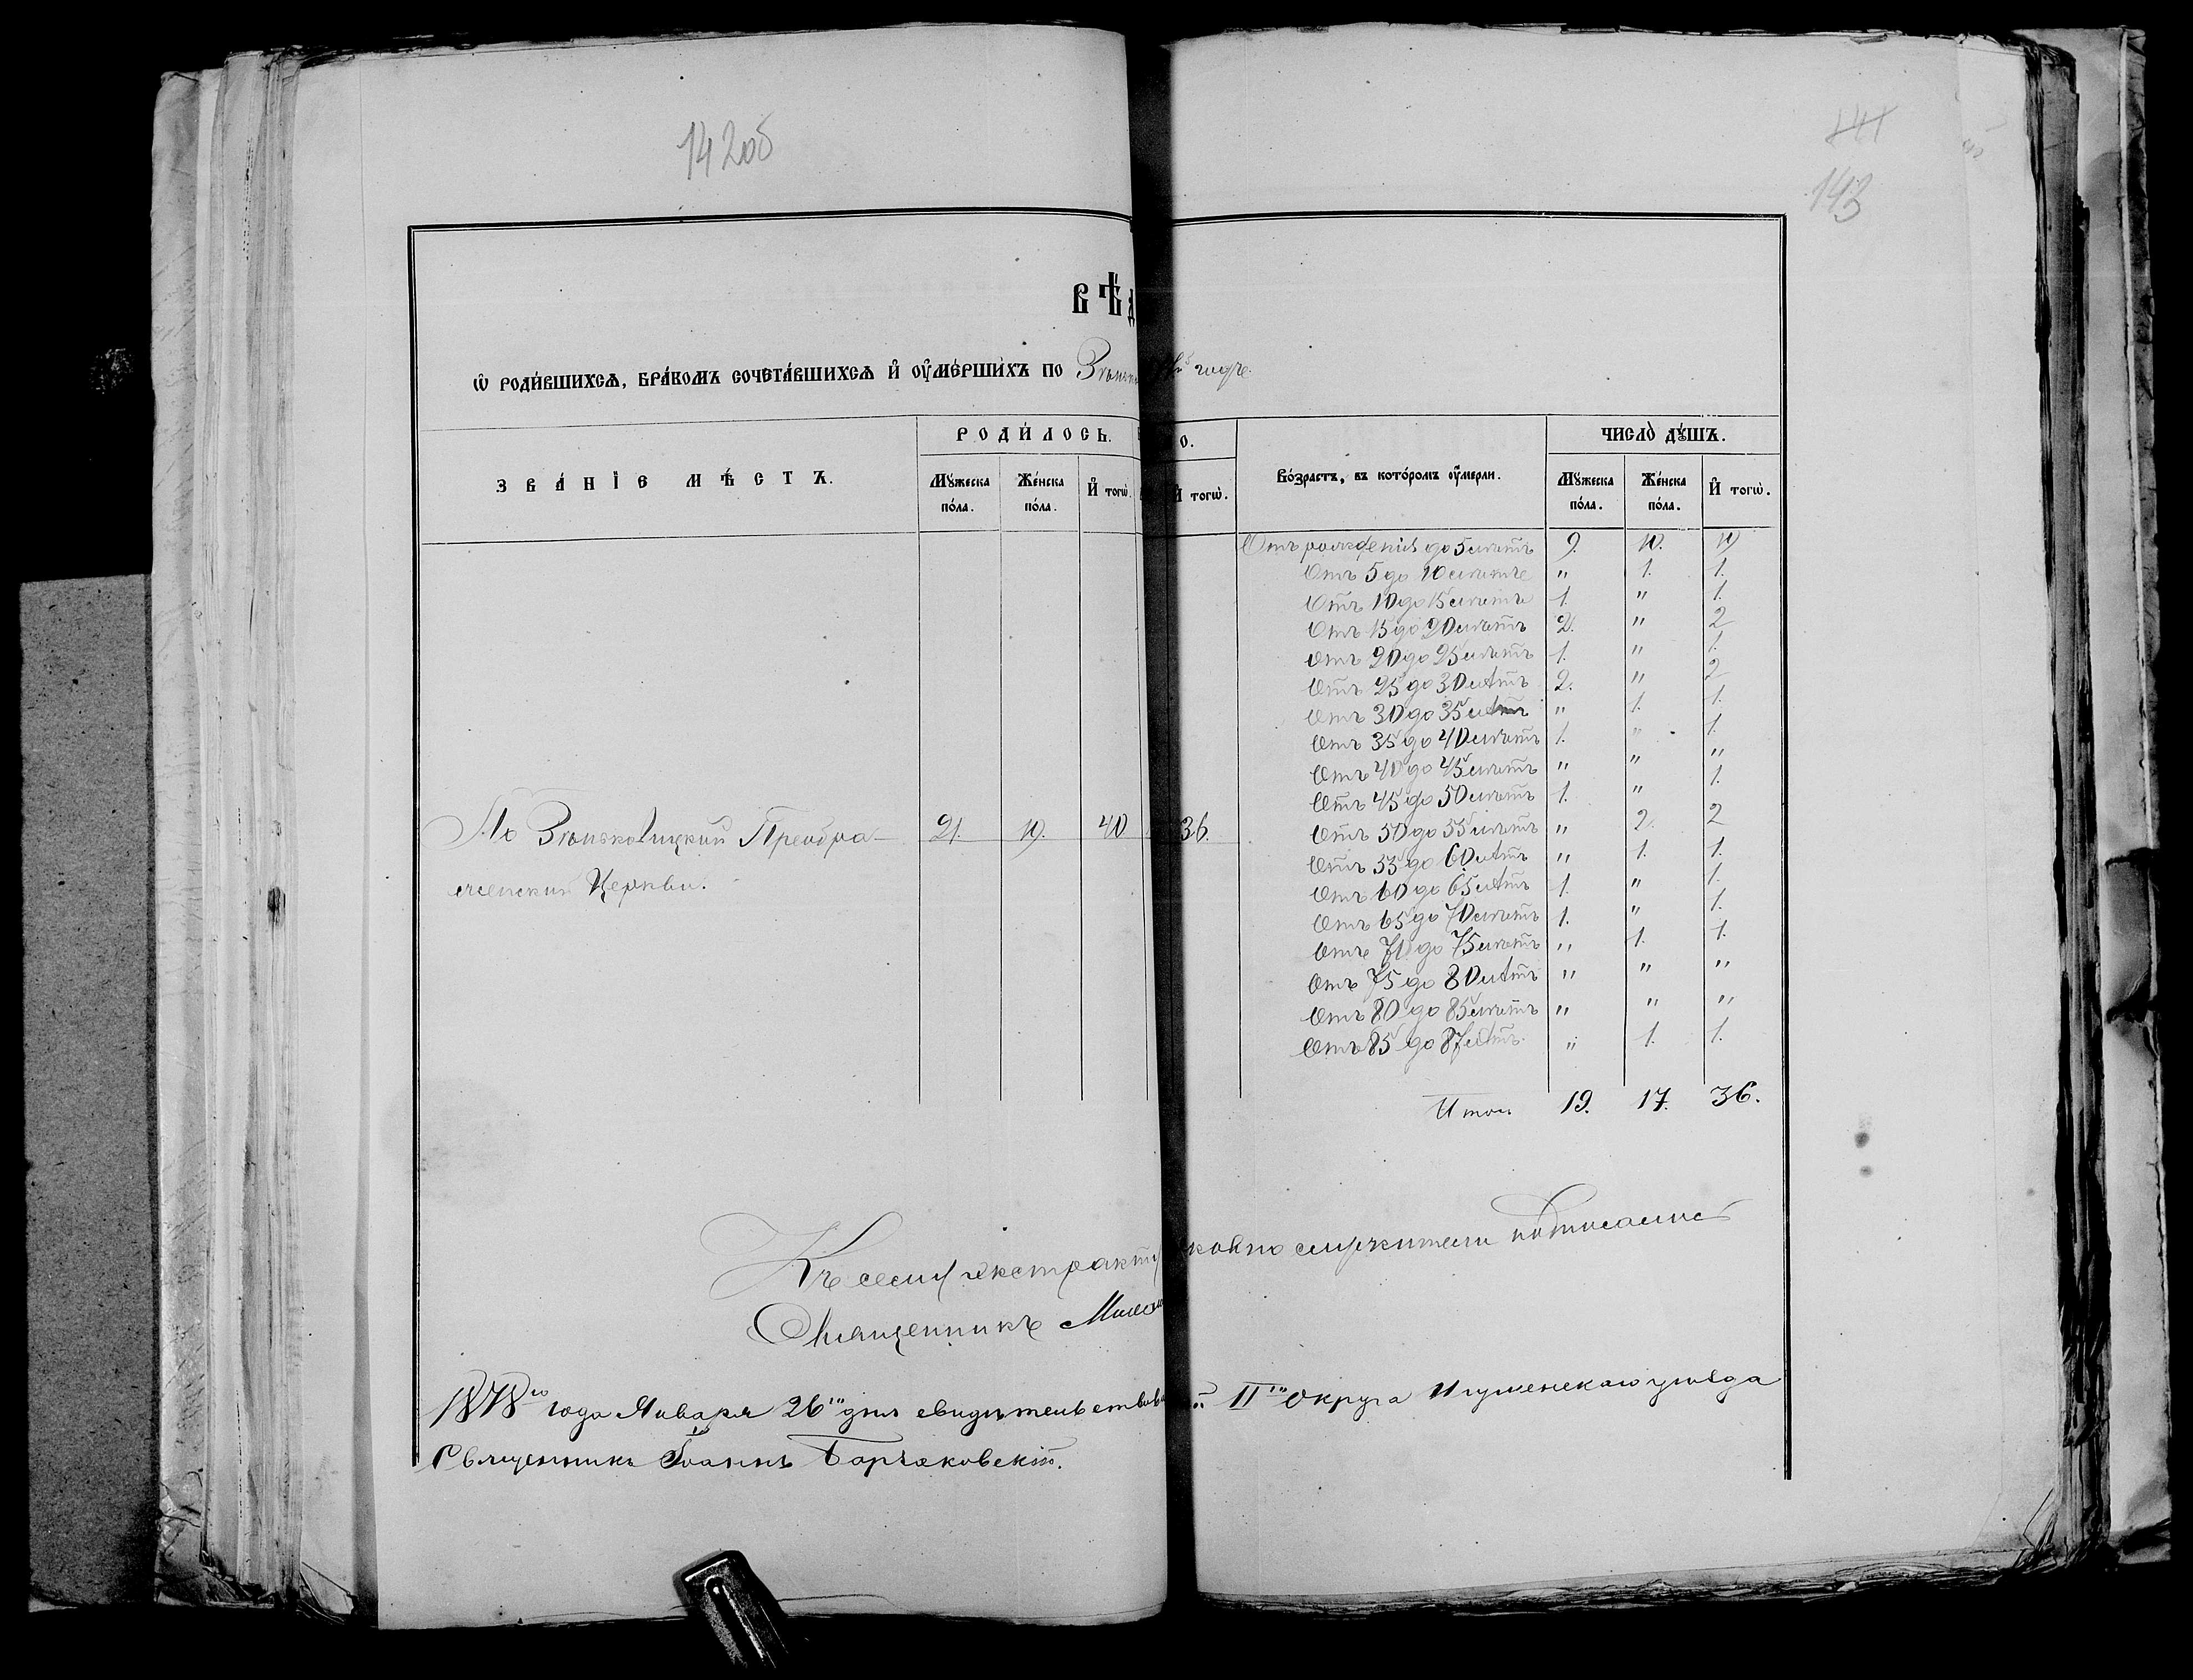 142об
141
143
ВѢД
Ѡ РОДИ́ВШИХСѦ, БРА́КОМЪ СОЧЕТА́ВШИХСѦ И҆ ОУ҆МЕ́РШИХЪ ПО годѣ.
ЗВА́НІЕ МѢ́СТЪ.
РОДИ́ЛОСЬ.
О.
Мꙋжеска по́ла.
Же́нска по́ла.
И҆тогѡ̀.
И҆тогѡ̀.
Во́зрастъ, въ кото́ромъ оу҆́мерли.
ЧИСЛО̀ ДꙊ́ШЪ.
Мꙋжеска по́ла.
Же́нска по́ла.
И҆тогѡ̀.
Отъ рожденія до 5 лѣтъ 9. 10. 19
Отъ 5 до 10 лѣтъ " 1. 1.
Отъ 10 до 15 лѣтъ 1. " 1.
Отъ 15 до 20 лѣтъ 2. " 2
Отъ 20 до 25 лѣтъ 1. " 1.
Отъ 25 до 30 лѣтъ 2. " 2
Отъ 30 до 35 лѣтъ " 1. 1.
Отъ 35 до 40 лѣтъ 1. " 1.
Отъ 40 до 45 лѣтъ " " "
Отъ 45 до 50 лѣтъ 1. " 1.
По Зеньковицкой Преобра- 21. 19. 40 36.
женской Церкви.
Отъ 50 до 55 лѣтъ " 2. 2
Отъ 55 до 60 лѣтъ " 1. 1.
Отъ 60 до 65 лѣтъ 1. " 1.
Отъ 65 до 70 лѣтъ 1. " 1.
Отъ 70 до 75 лѣтъ " 1. 1.
Отъ 75 до 80 лѣтъ " " "
Отъ 80 до 85 лѣтъ " " "
Отъ 85 до 87 лѣтъ " 1. 1.
Итого 19. 17. 36.
Къ сему экстракту ковно служители подписались
Священникъ
1878го года Января 26го дня свидѣтельствова II го Округа Игуменскаго уѣзда
Священникъ Іоаннъ Барчаковскій.